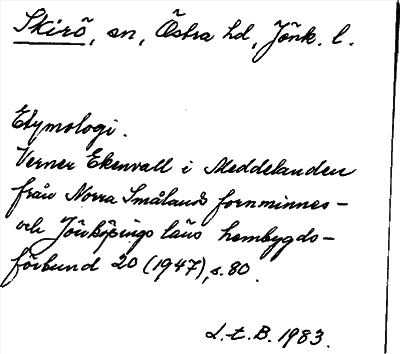 Skirö, sn, Östra hd, Jönk. l.
Etymologi.
Verner Ekenvall i Meddelanden
från Norra Smålands fornminnes-
och Jönköpings läns hembygds-
förbund 20 (1947), s. 80.
L.t.B. 1983.